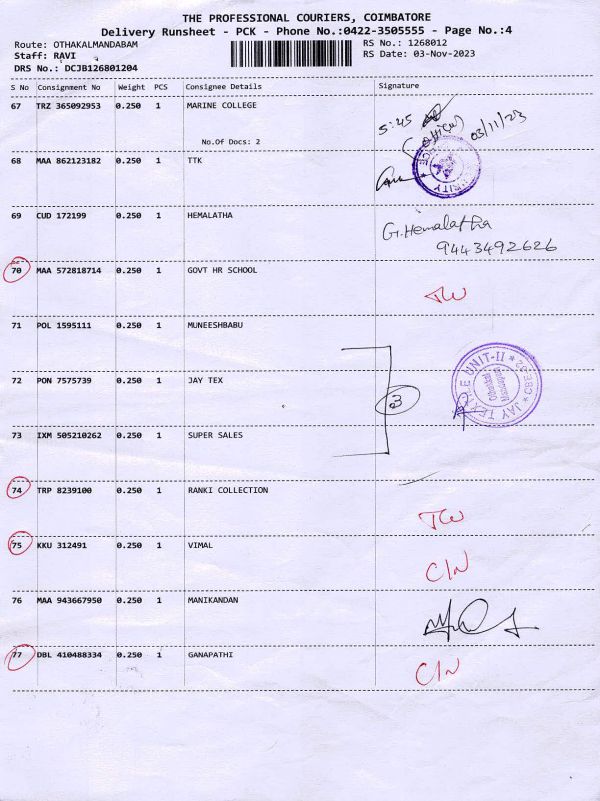 THE PROFESSIONAL COURIERS, COIMBATORE
Delivery Runsheet - PCK - Phone No.:0422-3505555 - Page No.:4
Route: OTHAKALMANDABAM
Staff: RAVI
DRS No.: DCJB126801204
RS No.: 1268012
RS Date: 03-Nov-2023
S No Consignment No Weight PCS Consignee Details Signature
67 TRZ 365092953 0.250 1 MARINE COLLEGE 5:45
03/11/23
No.Of Docs: 2
68 MAA 862123182 0.250 1 TTK
69 CUD 172199 0.250 1 HEMALATHA G.Hemalatha
9443492626
70 MAA 572818714 0.250 1 GOVT HR SCHOOL
TW
71 POL 1595111 0.250 1 MUNEESHBABU
72 PON 7575739 0.250 1 JAY TEX 3
JAY TEXTILE UNIT-II * CBE-32 *
73 IXM 505210262 0.250 1 SUPER SALES
74 TRP 8239100 0.250 1 RANKI COLLECTION
TW
75 KKU 312491 0.250 1 VIMAL
C/N
76 MAA 943667950 0.250 1 MANIKANDAN
77 DBL 410488334 0.250 1 GANAPATHI
C/N